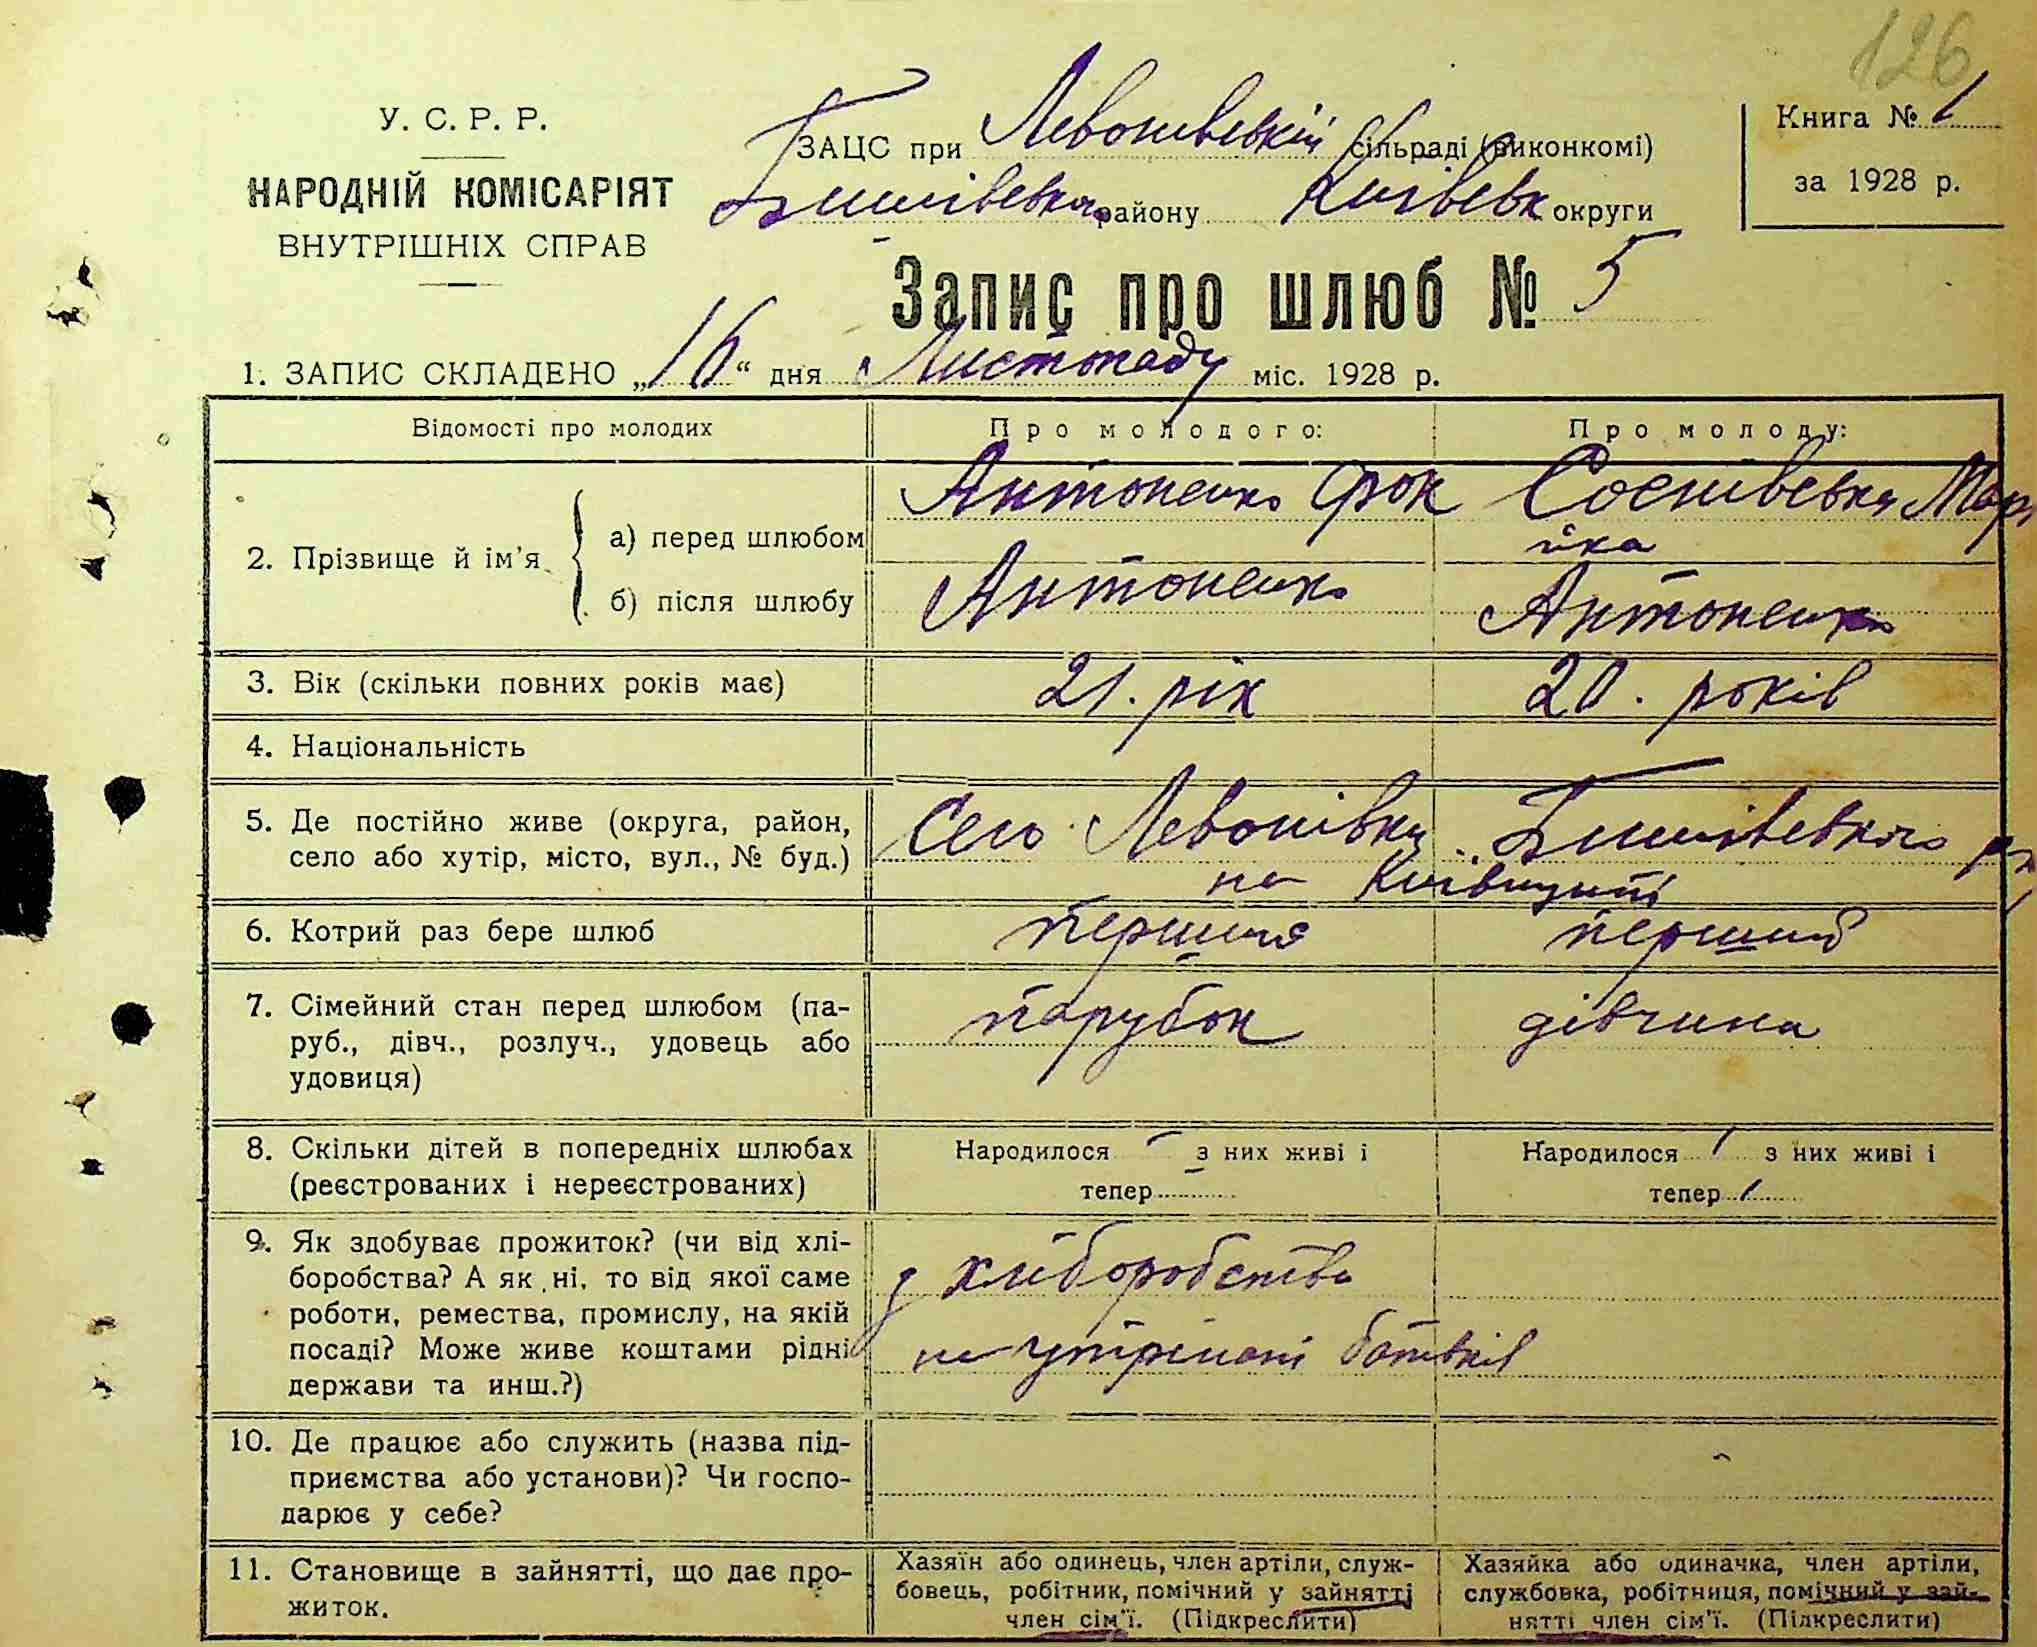 126
У. С. Р. Р.
НАРОДНІЙ КОМІСАРІЯТ
ВНУТРІШНІХ СПРАВ
ЗАЦС при Левонівській сільраді (виконкомі)
району Київськ округи
Книга № 1
за 1928 р.
Запис про шлюб № 5
1. ЗАПИС СКЛАДЕНО „16“ дня Листопаду міс. 1928 р.
Відомості про молодих
Про молодого:
Про молоду:
2. Прізвище й ім’я
а) перед шлюбом
Антоненко Фрок
Соснівська Мар
ійка
б) після шлюбу
Антоненко
Антоненко
3. Вік (скільки повних років має)
21. рік
20. років
4. Національність
5. Де постійно живе (округа, район,
село або хутір, місто, вул., № буд.)
Село Левонівка
на Київщині
6. Котрий раз бере шлюб
перший
перший
7. Сімейний стан перед шлюбом (па-
руб., дівч., розлуч., удовець або
удовиця)
парубок
дівчина
8. Скільки дітей в попередніх шлюбах
(реєстрованих і нереєстрованих)
Народилося - з них живі і
тепер
Народилося / з них живі і
тепер /
9. Як здобуває прожиток? (чи від хлі-
боробства? А як ні, то від якої саме
роботи, ремества, промислу, на якій
посаді? Може живе коштами рідні
держави та инш.?)
з хліборобства
на утрімані батьків
10. Де працює або служить (назва під-
приємства або установи)? Чи госпо-
дарює у себе?
11. Становище в зайнятті, що дає про-
житок.
Хазяїн або одинець, член артіли, служ-
бовець, робітник, помічний у зайнятті
член сім’ї. (Підкреслити)
Хазяйка або одиначка, член артіли,
службовка, робітниця, помічний у зай-
нятті член сім’ї. (Підкреслити)